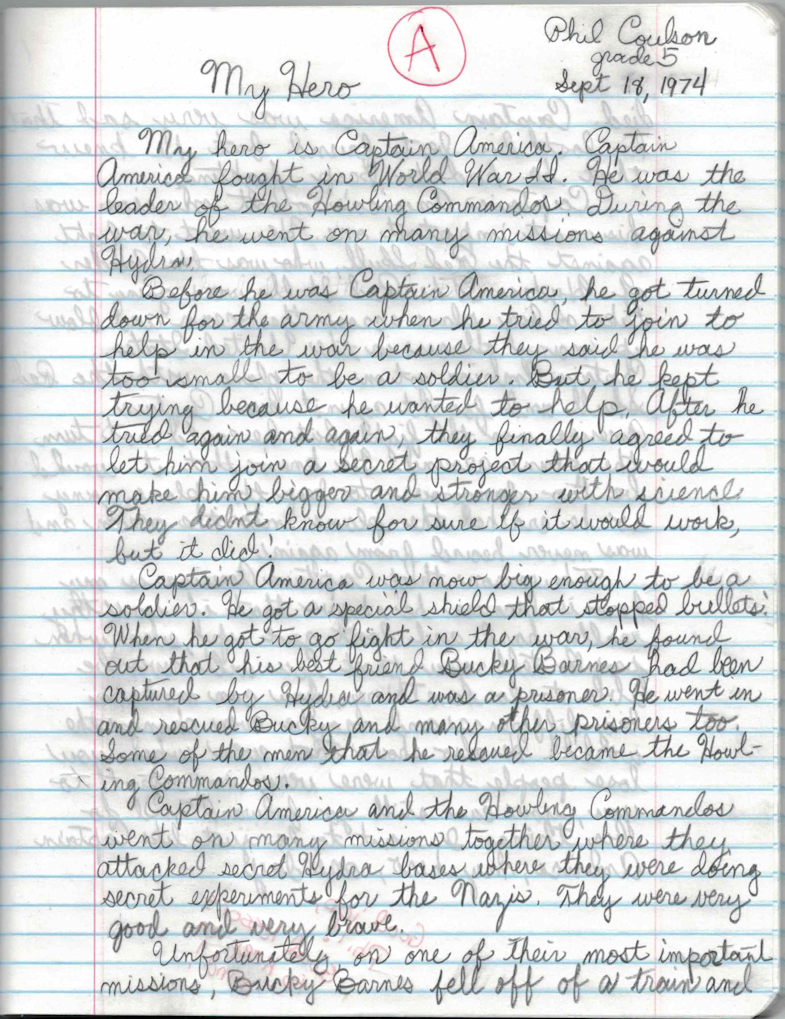 A
Phil Coulson
grade 5
Sept 18, 1974
My Hero
My hero is Captain America. Captain
America fought in World War II. He was the
leader of the Howling Commandos. During the
war, he went on many missions against
Hydra.
Before he was Captain America, he got turned
down for the army when he tried to join to
help in the war because they said he was
too small to be a soldier. But, he kept
trying because he wanted to help. After he
tried again and again, they finally agreed to
let him join a secret project that would
make him bigger and stronger with science.
They didnt know for sure if it would work,
but it did!
Captain America was now big enough to be a
soldier. He got a special shield that stopped bullets!
When he got to go fight in the war, he found
out that his best friend Bucky Barnes had been
captured by Hydra and was a prisoner. He went in
and rescued Bucky and many other prisoners too.
Some of the men that he rescued became the Howl-
ing Commandos.
Captain America and the Howling Commandos
went on many missions together where they
attacked secret Hydra bases where they were doing
secret experiments for the Nazis. They were very
good and very brave.
Unfortunately, on one of their most important
missions, Bucky Barnes fell off of a train and